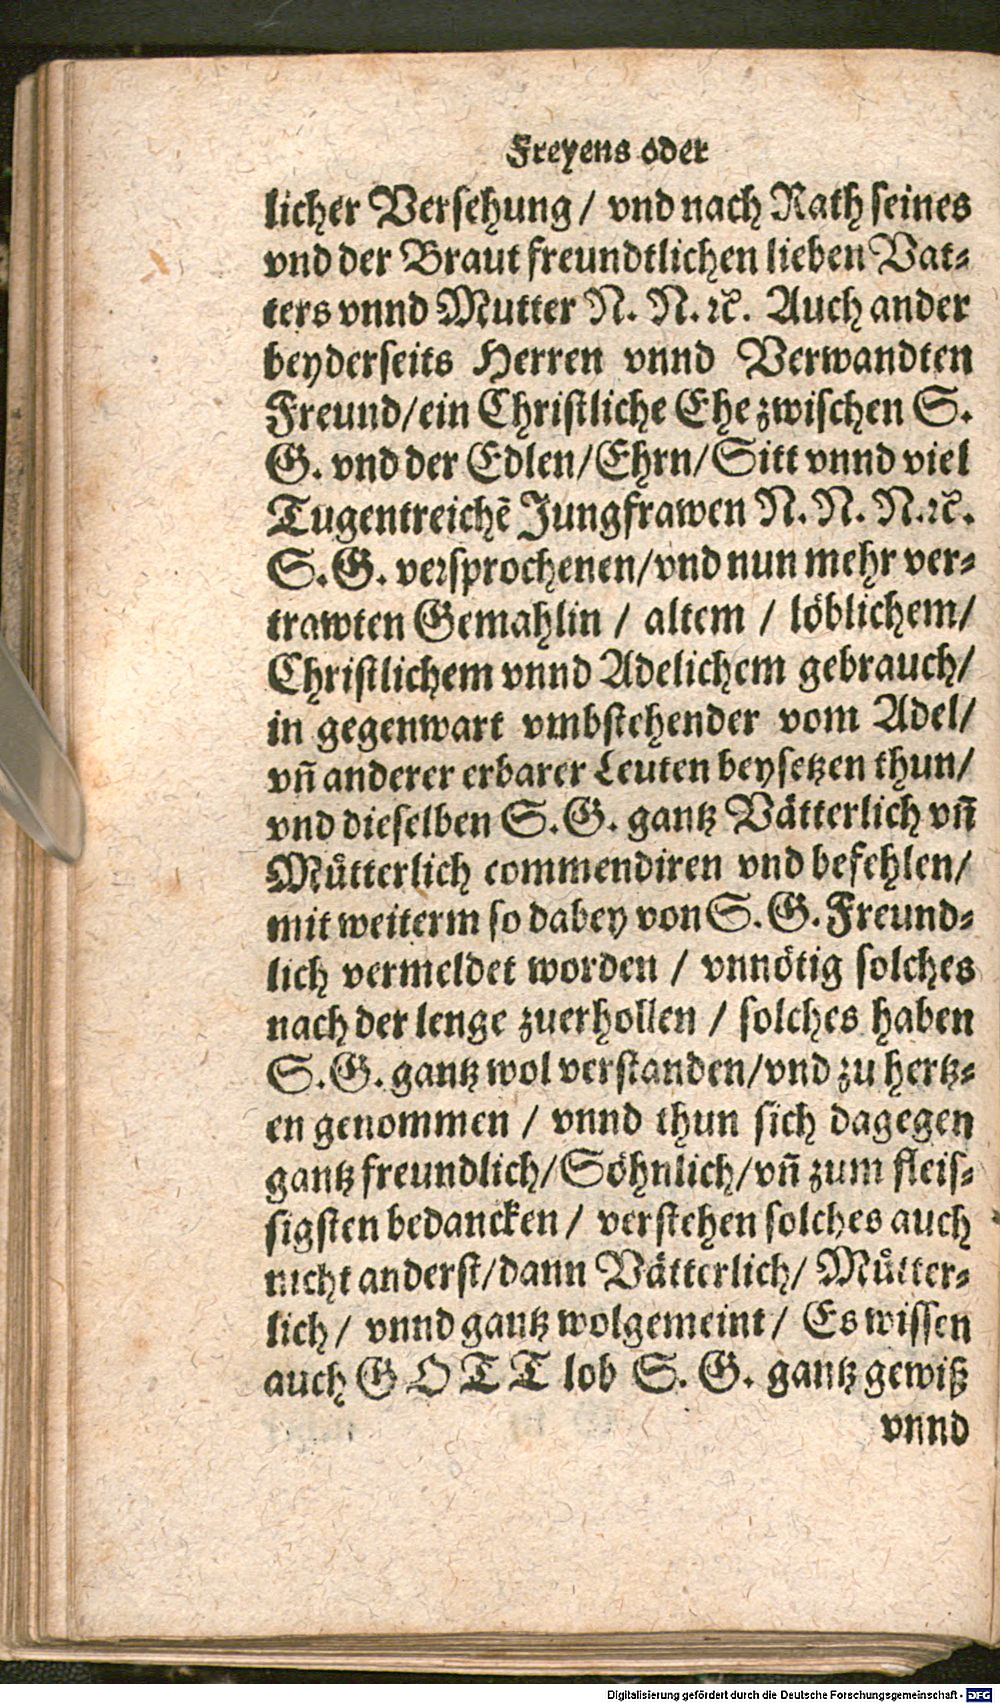 Freyens oder
licher Versehung / vnd nach Rath seines
vnd der Braut freundtlichen lieben Vat⸗
ters vnnd Mutter N. N. ꝛc. Auch ander
beyderseits Herren vnnd Verwandten
Freund/ein Christliche Ehe zwischen S.
G. vnd der Edlen/Ehrn/Sitt vnnd viel
Tugentreichẽ Jungfrawen N. N. N.ꝛc.
S.G. versprochenen/vnd nun mehr ver⸗
trawten Gemahlin / altem / löblichem/
Christlichem vnnd Adelichem gebrauch/
in gegenwart vmbstehender vom Adel/
vñ anderer erbarer Leuten beysetzen thun/
vnd dieselben S.G. gantz Vätterlich vñ
Mütterlich commendiren vnd befehlen/
mit weiterm so dabey von S.G. Freund⸗
lich vermeldet worden / vnnötig solches
nach der lenge zuerhollen / solches haben
S.G. gantz wol verstanden/vnd zu hertz⸗
en genommen / vnnd thun sich dagegen
gantz freundlich/Söhnlich/vñ zum fleis⸗
sigsten bedancken / verstehen solches auch
nicht anderst/dann Vätterlich/ Mütter⸗
lich / vnnd gantz wolgemeint / Es wissen
auch GOTT lob S. G. gantz gewiß
vnnd
Digitalisierung gefördert durch die Deutsche Forschungsgemeinschaft - DFG